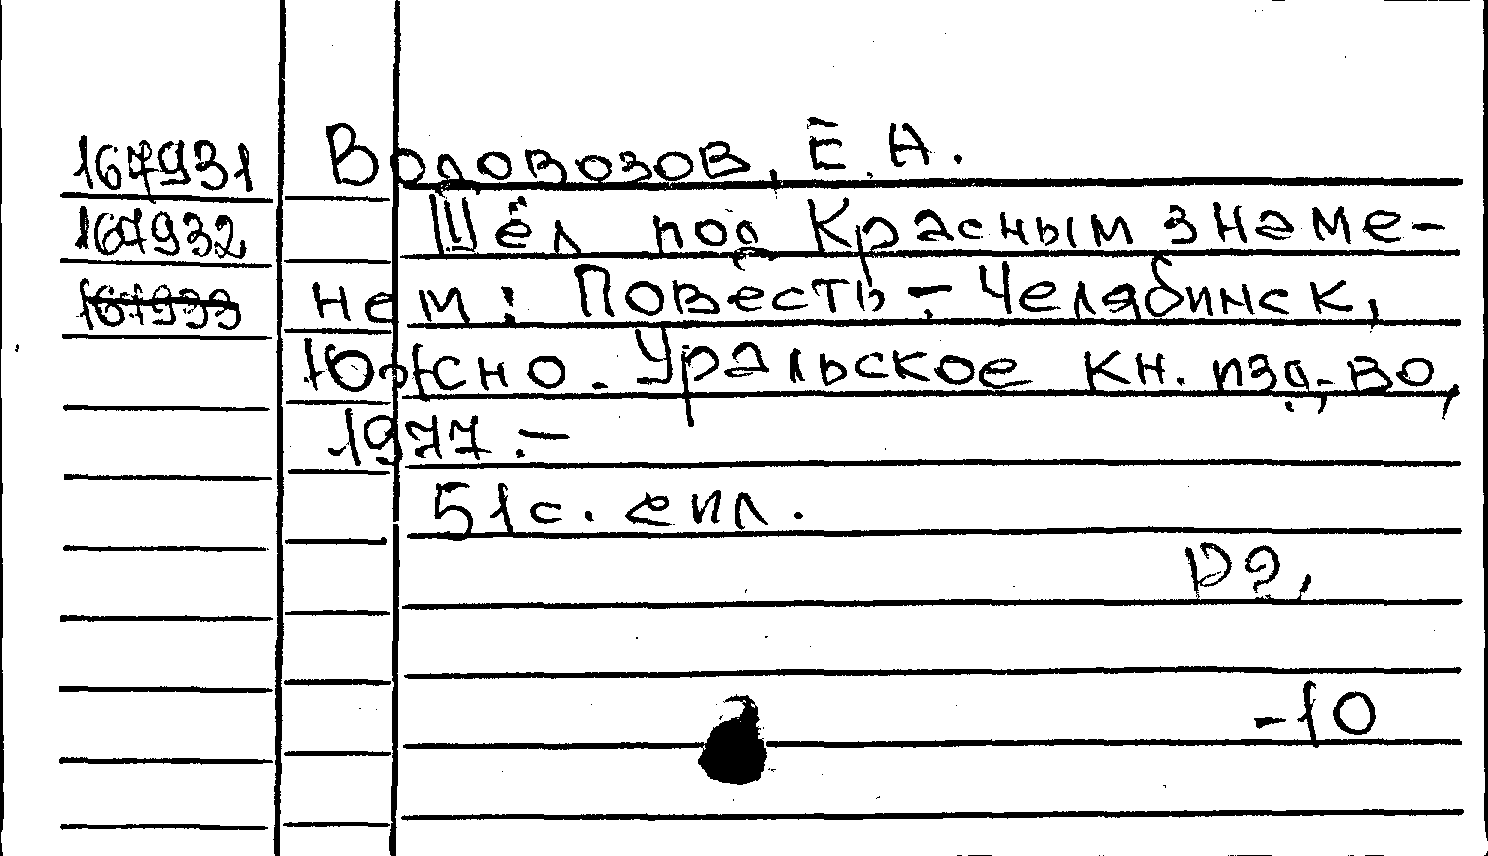 167931 Водовозов, Е. А.
167932 Шёл под Красным знаме-
167933 нем: Повесть.- Челябинск,
Южно-Уральское кн. изд-во,
1977.-
51с. с ил.
Р2,
-10